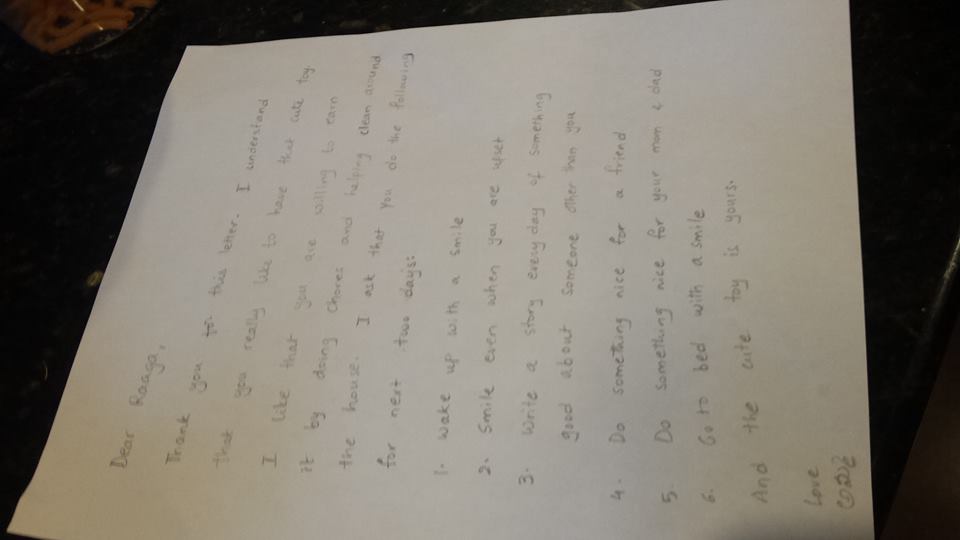 Dear Raaga,
Thank you for this letter. I understand
that you really like to have that cute toy.
I like that you are willing to earn
it by doing chores and helping clean around
the house. I ask that you do the following
for next two days:
1. Wake up with a smile
2. Smile even when you are upset
3. Write a story every day of something
good about someone other than you
4. Do something nice for a friend
5. Do something nice for your mom & dad
6. Go to bed with a smile
And the cute toy is yours.
Love